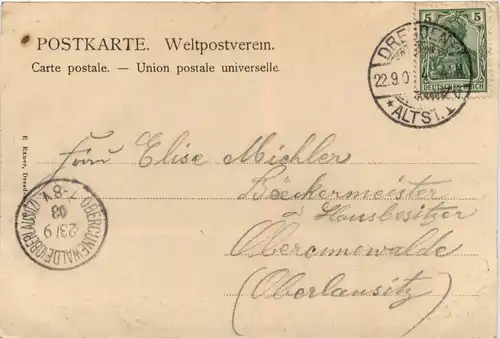 POSTKARTE. Weltpostverein.
Carte postale. — Union postale universelle.
5 5
DEUTSCHES REICH
DRESDEN
22.9.0
* ALTST. 1
E. Exner, Dresden
Frau Elise Michler
Bäckermeister
u Hausbesitzer
Obercunewalde
(Oberlausitz)
OBERCUNEWALDE (OBERLAUSITZ)
23/9
03
7-8V